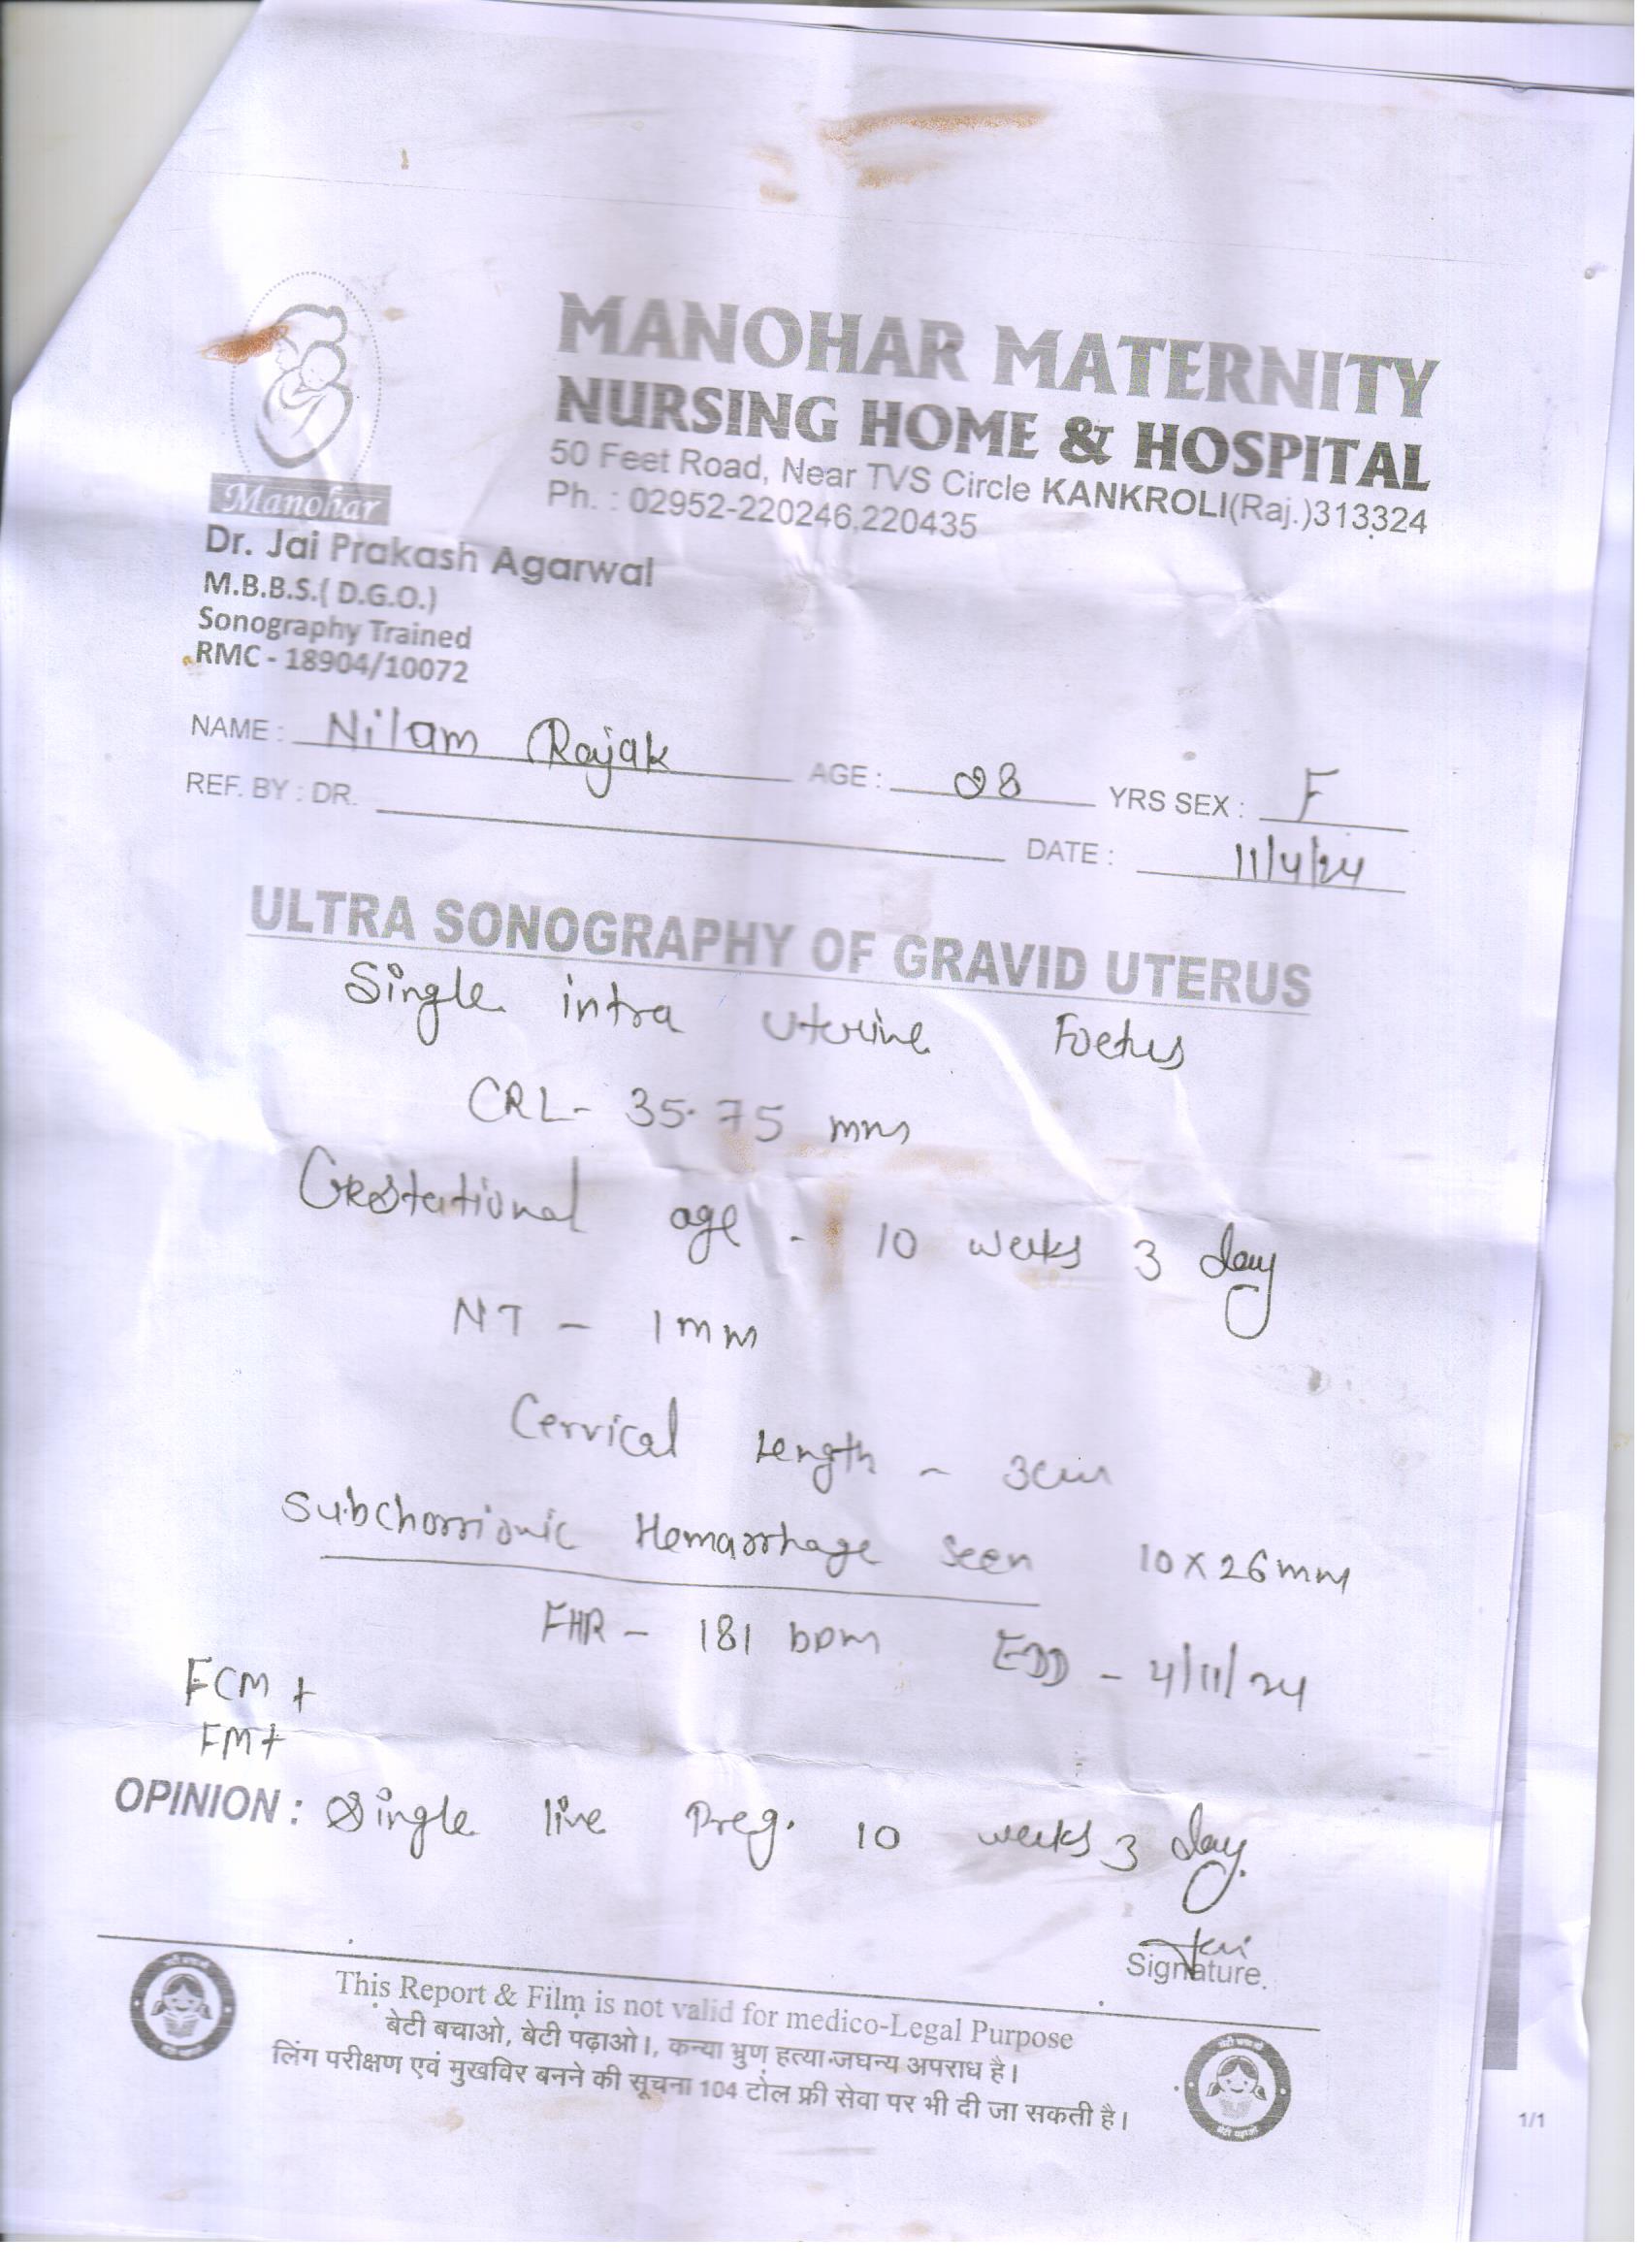 MANOHAR MATERNITY
NURSING HOME & HOSPITAL
50 Feet Road, Near TVS Circle KANKROLI(Raj.)313324
Ph. : 02952-220246,220435
Manohar
Dr. Jai Prakash Agarwal
M.B.B.S.( D.G.O.)
Sonography Trained
RMC - 18904/10072
NAME : Nilam Rajak AGE : 28 YRS SEX : F
REF. BY : DR.
DATE : 11/4/24
ULTRA SONOGRAPHY OF GRAVID UTERUS
Single intra uterine Foetus
CRL- 35.75 mm
Gestational age - 10 weeks 3 day
NT - 1mm
Cervical Length - 3cm
Subchorrionic Hemarrhage seen 10x26mm
FHR - 181 bpm EDD - 4/11/24
FCM +
FM+
OPINION : Single live Preg. 10 weeks 3 day.
Signature.
This Report & Film is not valid for medico-Legal Purpose
बेटी बचाओ, बेटी पढ़ाओ।, कन्या भ्रुण हत्या जघन्य अपराध है।
लिंग परीक्षण एवं मुखविर बनने की सूचना 104 टोल फ्री सेवा पर भी दी जा सकती है।
1/1